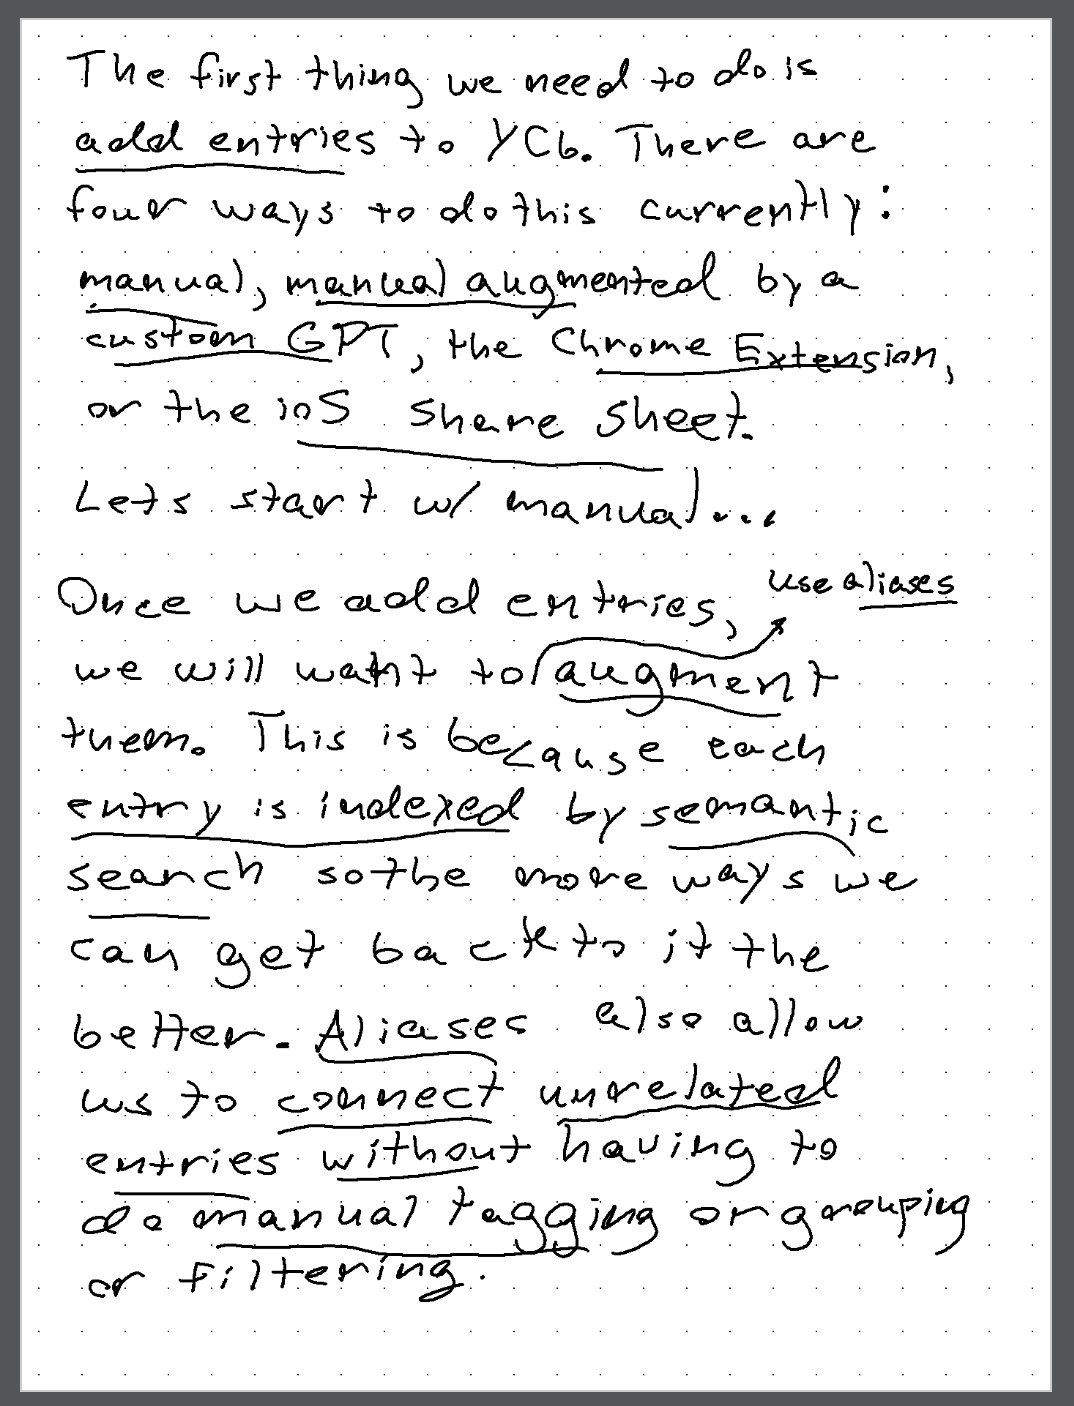 The first thing we need to do is
add entries to YCb. There are
four ways to do this currently:
manual, manual augmented by a
custom GPT, the Chrome Extension,
or the ioS Share Sheet.
Lets start w/ manual...
Once we add entries,
use aliases
we will want to augment
them. This is because each
entry is indexed by semantic
search so the more ways we
can get back to it the
better. Aliases also allow
us to connect unrelated
entries without having to
do manual tagging or grouping
or filtering.